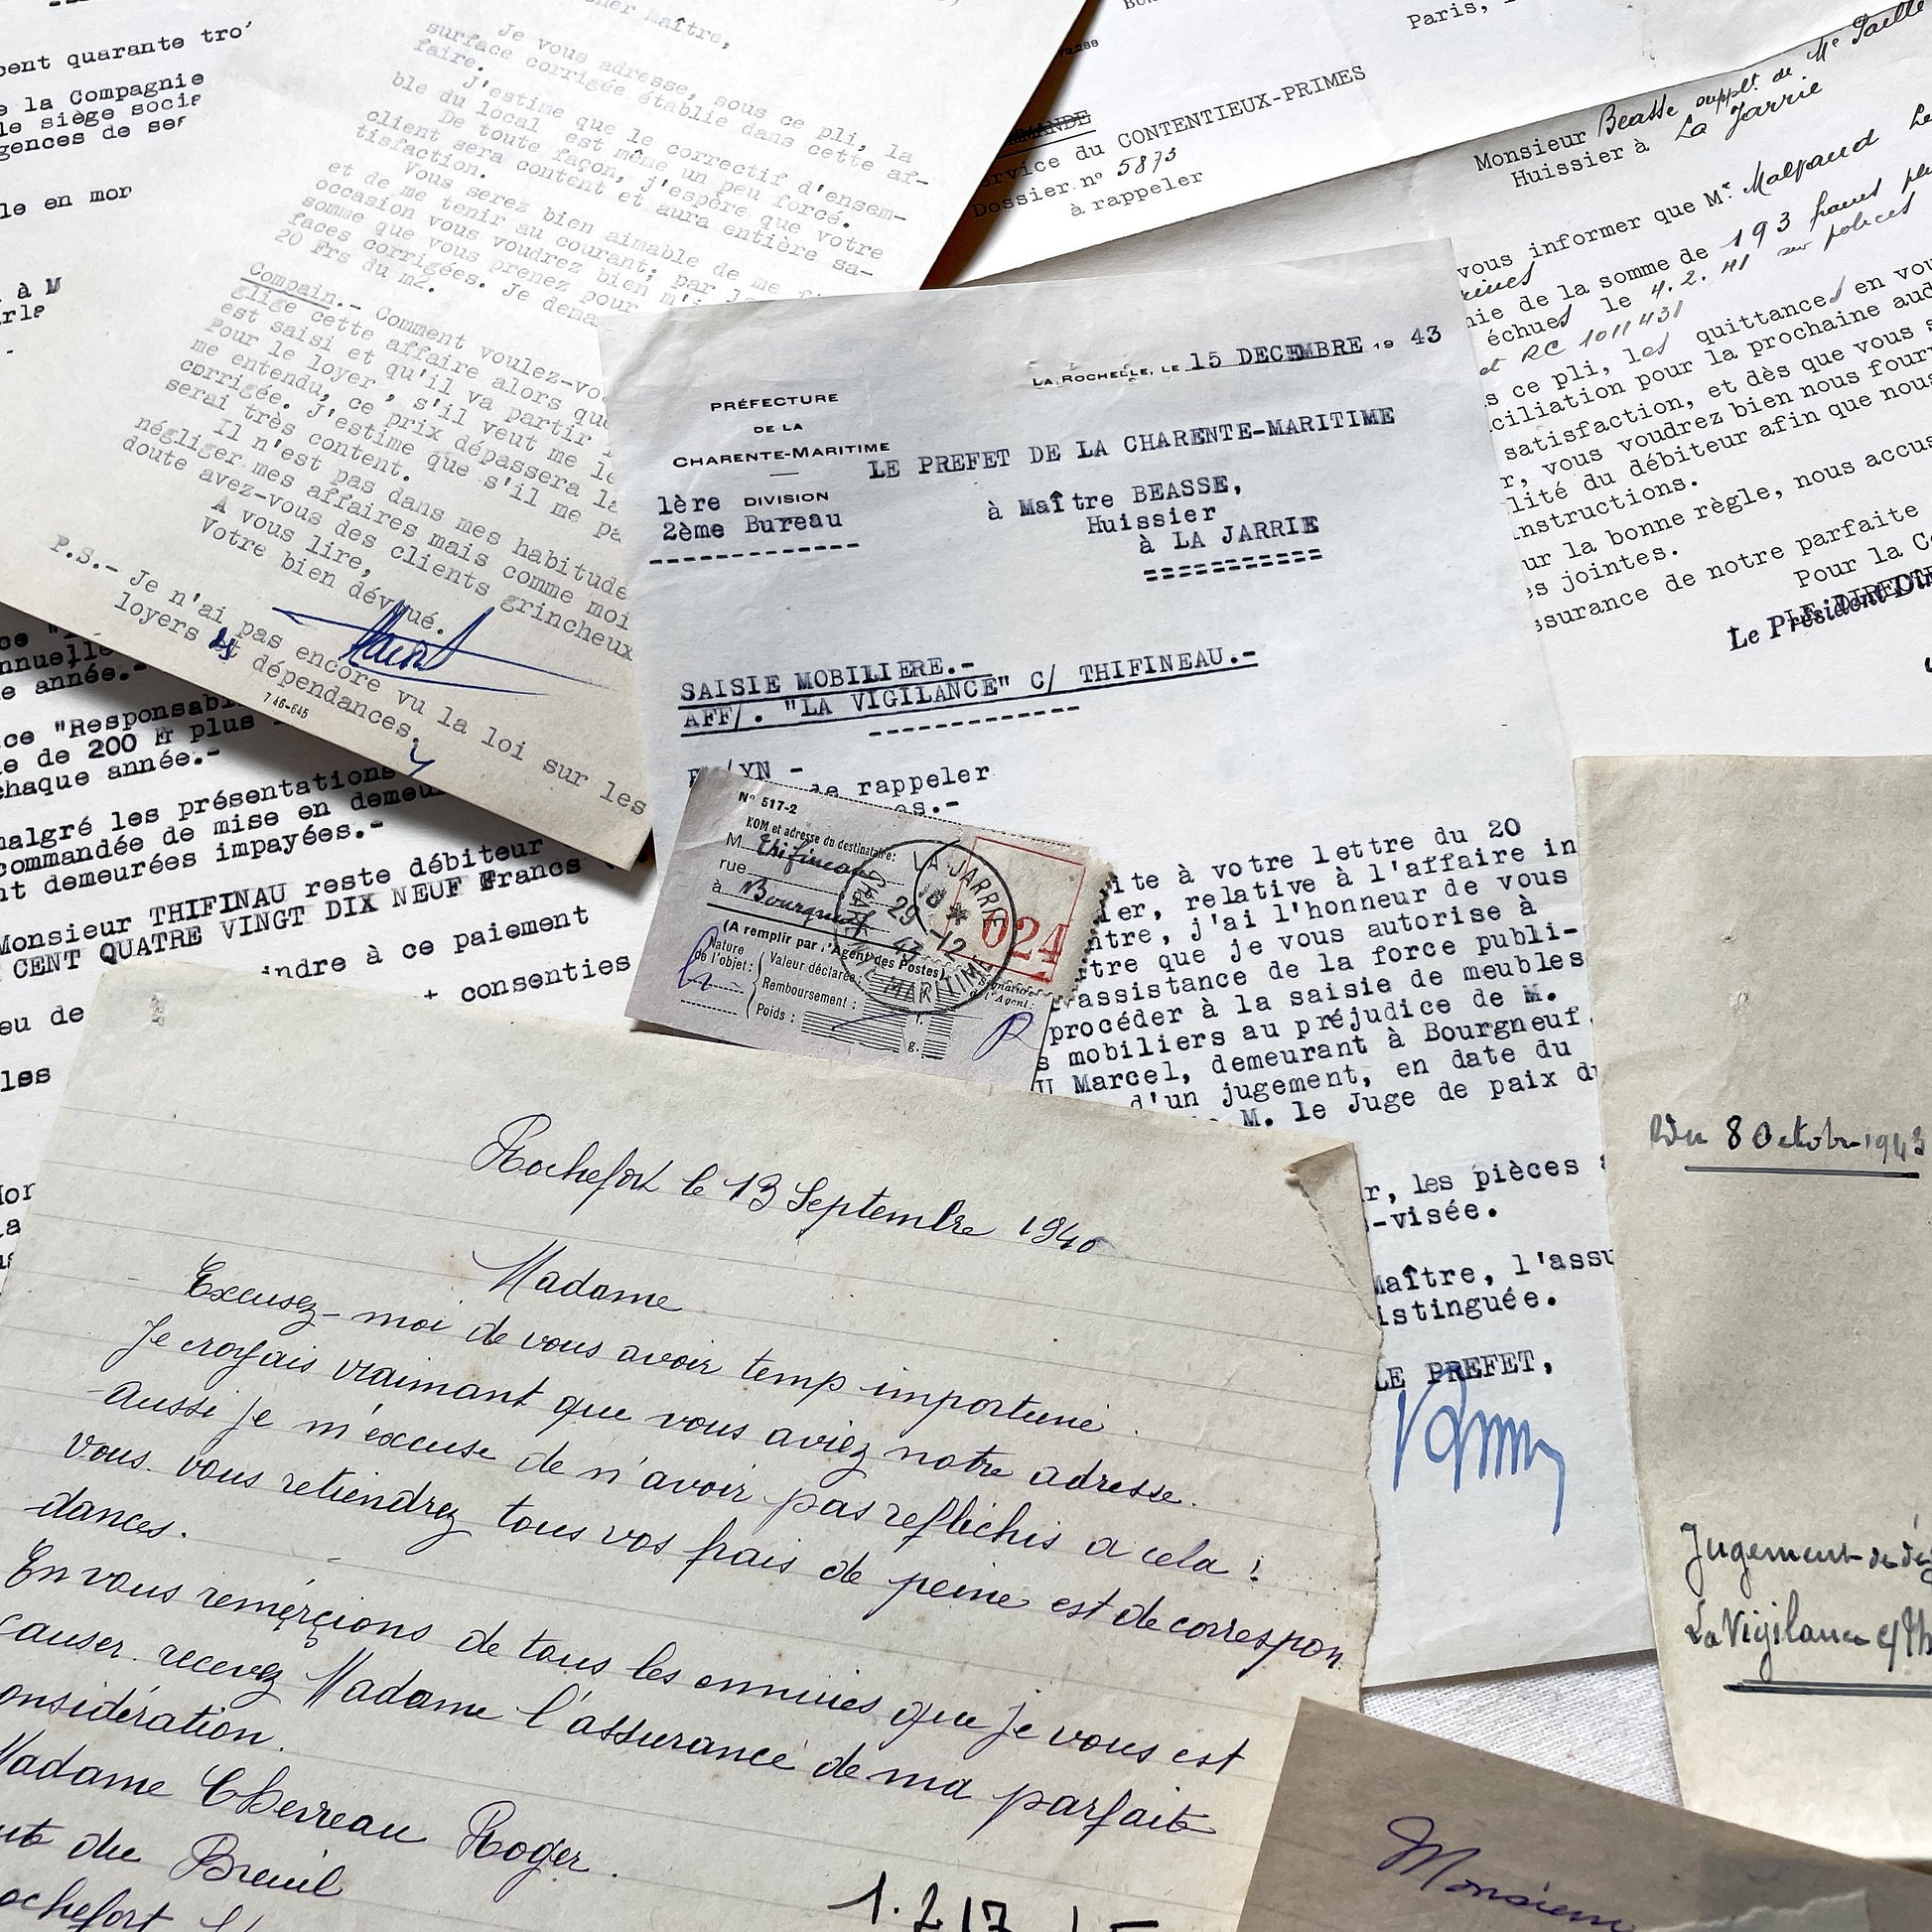 cent quarante tro
e la Compagnie
le siège socia
gences de ser
le en mor
à M
her Maître,
Je vous adresse, sous ce pli, la
surface corrigée établie dans cette af-
faire.
J'estime que le correctif d'ensem-
ble du local est même un peu forcé.
De toute façon, j'espère que votre
client sera content et aura entière sa-
tisfaction.
Vous serez bien aimable de me
et de me tenir au courant; par
occasion vous voudrez bien m'i
somme que vous prenez pour
faces corrigées. Je dema
20 Frs du m2.
Compain.- Comment voulez-vo
glige cette affaire alors que
est saisi et qu'il va partir
Pour le loyer, s'il veut me le
me entendu, ce prix dépassera la
corrigée. J'estime que s'il me pa
serai très content.
Il n'est pas dans mes habitude
négliger mes affaires mais comme moi
doute avez-vous des clients grincheux
A vous lire,
Votre bien dévoué.
P.S.- Je n'ai pas encore vu la loi sur les
loyers et dépendances.
7 46-645
Paris, 1
ervice du CONTENTIEUX-PRIMES
Dossier n° 5873
à rappeler
Monsieur Beasse suppt. de Me
Huissier à La Jarrie
vous informer que Mr. Malpaud
nie de la somme de 193 francs
échues le 4.2.41 sur polices
et RC 1011431
s ce pli, les quittances en vou
ciliation pour la prochaine aud
satisfaction, et dès que vous s
r, vous voudrez bien nous fourn
lité du débiteur afin que nous
instructions.
ur la bonne règle, nous accus
es jointes.
ssurance de notre parfaite
Pour la Co
Le Président Dir
LE DIRECTE
LA ROCHELLE, LE 15 DECEMBRE 19 43
PRÉFECTURE
DE LA
CHARENTE-MARITIME
1ère DIVISION
2ème Bureau
LE PREFET DE LA CHARENTE-MARITIME
à Maître BEASSE,
Huissier
à LA JARRIE
SAISIE MOBILIERE.-
AFF/. "LA VIGILANCE" C/ THIFINEAU.-
YN -
de rappeler
es.-
ite à votre lettre du 20
ier, relative à l'affaire in
ntre, j'ai l'honneur de vous
tre que je vous autorise à
assistance de la force publi-
procéder à la saisie de meubles
s mobiliers au préjudice de M.
U Marcel, demeurant à Bourgneuf.
d'un jugement, en date du
M. le Juge de paix du
r, les pièces
-visée.
Maître, l'assu
istinguée.
LE PREFET,
N° 517-2
NOM et adresse du destinataire:
M. Thifineau
rue
à Bourgneuf
(A remplir par l'Agent des Postes)
Nature
de l'objet:
Valeur déclarée:
Remboursement :
Poids :
f.
g.
Signature
de l'Agent:
024
LA JARRIE
18 *
29 -12
43
CHARTE MARITIME
nnuelle
e année.-
ce "Responsabi
e de 200 Fr plus
chaque année.-
malgré les présentations
commandée de mise en demeu
nt demeurées impayées.-
Monsieur THIFINAU reste débiteur
CENT QUATRE VINGT DIX NEUF Francs
indre à ce paiement
consenties
eu de
les
Rochefort le 13 Septembre 1940
Madame
Excusez-moi de vous avoir temp importuné.
Je croyais vraimant que vous aviez notre adresse.
Aussi je m'excuse de n'avoir pas reflechis a cela!
Vous vous retiendrez tous vos frais de peine est de correspon
dances.
En vous remerçions de tous les ennuies que je vous est
causer. recevez Madame l'assurance de ma parfaite
onsidération.
Madame Cherreau Roger.
du Breuil
ochefort
1.217
Du 8 Octobre 1943
Jugement de dé
La Vigilance c/ Th
Monsieur